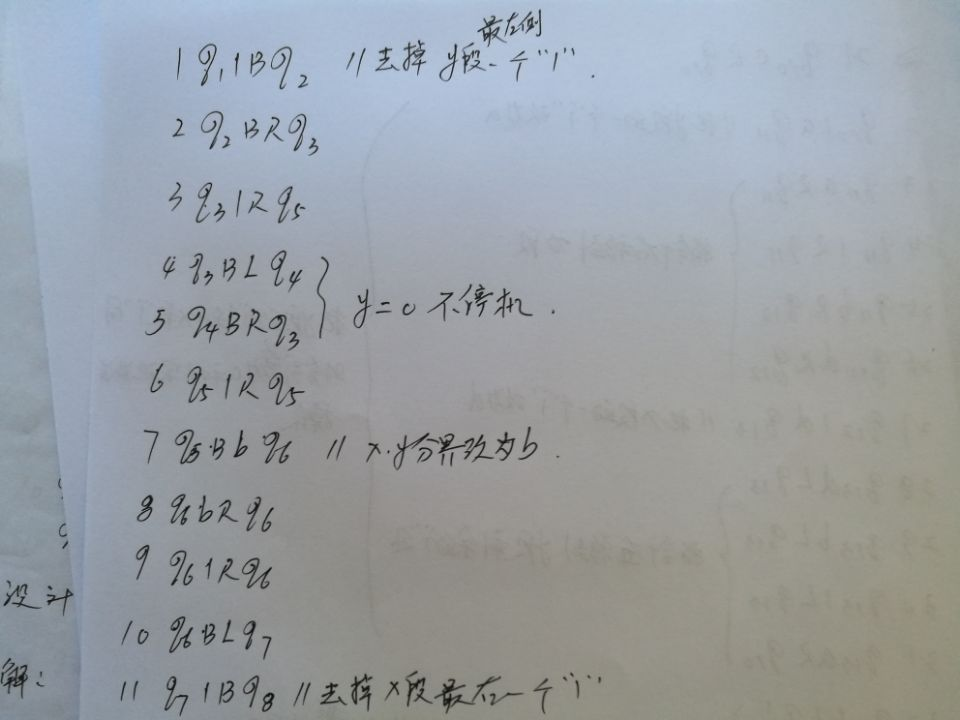 最左侧
1 q₁1Bq₂ //去掉y段一个"1".
2 q₂BRq₃
3 q₃1Rq₅
4 q₃BLq₄
5 q₄BRq₃ } y=0 不停机.
6 q₅1Rq₅
7 q₅Bbq₆ // x.y分界改为b.
8 q₆bRq₆
9 q₆1Rq₆
10 q₆BLq₇
设计
解:
11 q₇1Bq₈ //去掉x段最右一个"1"